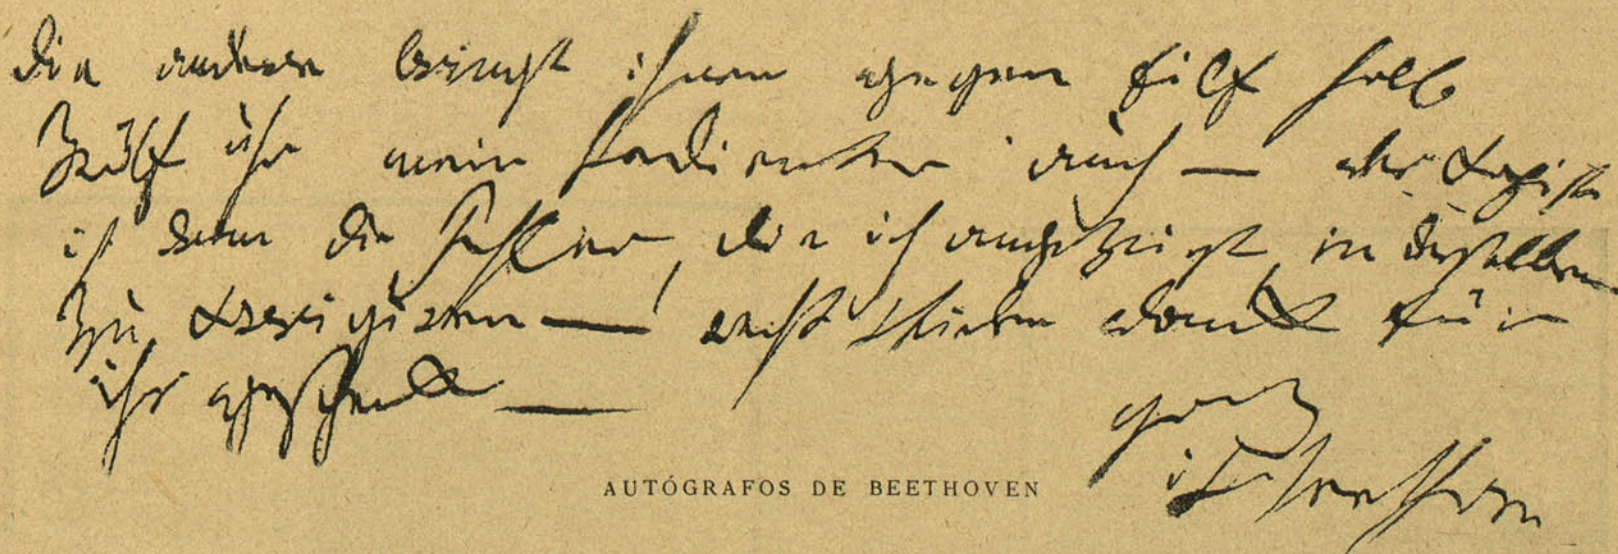 die andere bringt ihnen gegen Eilf halb
Zwölf uhr mein bedienter auch —
ist denn die Fehler, die ich angezeigt, in derselben
zu — vielen dank für
ihr geschenk —
ganz
ihr Beethoven
AUTÓGRAFOS DE BEETHOVEN